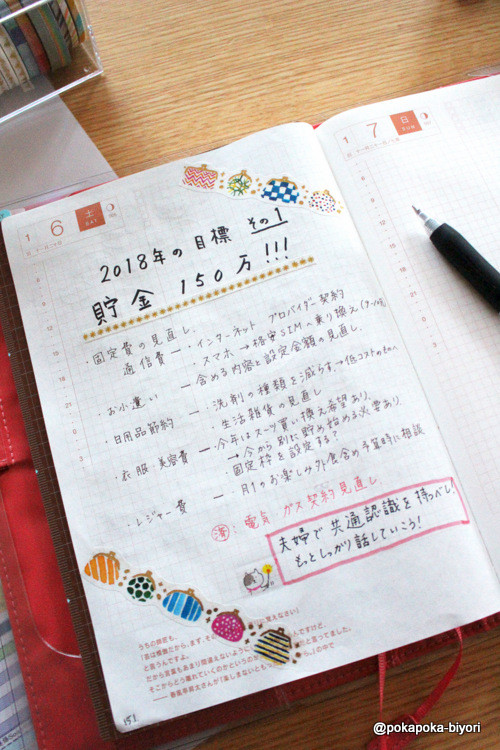 1 6 土 SAT
1 7 日 SUN
2018年の目標 その1
貯金 150万!!!
・固定費の見直し
通信費 ー ・インターネット プロバイダー契約
・スマホ→格安SIMへ乗り換え
・お小遣い ー 含める内容と設定金額の見直し
・日用品節約 ー ・洗剤の種類を減らす→低コスト
・生活雑貨の見直し
・衣服・美容費 ー ・今年はスーツ買い換え希望あり、
→今から別に貯め始める必要あり
固定枠を設定する?
・レジャー費 ー ・月1のお楽しみ外食含め予算時に相談
済: 電気 ガス 契約見直し
夫婦で共通認識を持つべし!
もっとしっかり話していこう!
と言うんですよ。
151
@pokapoka-biyori